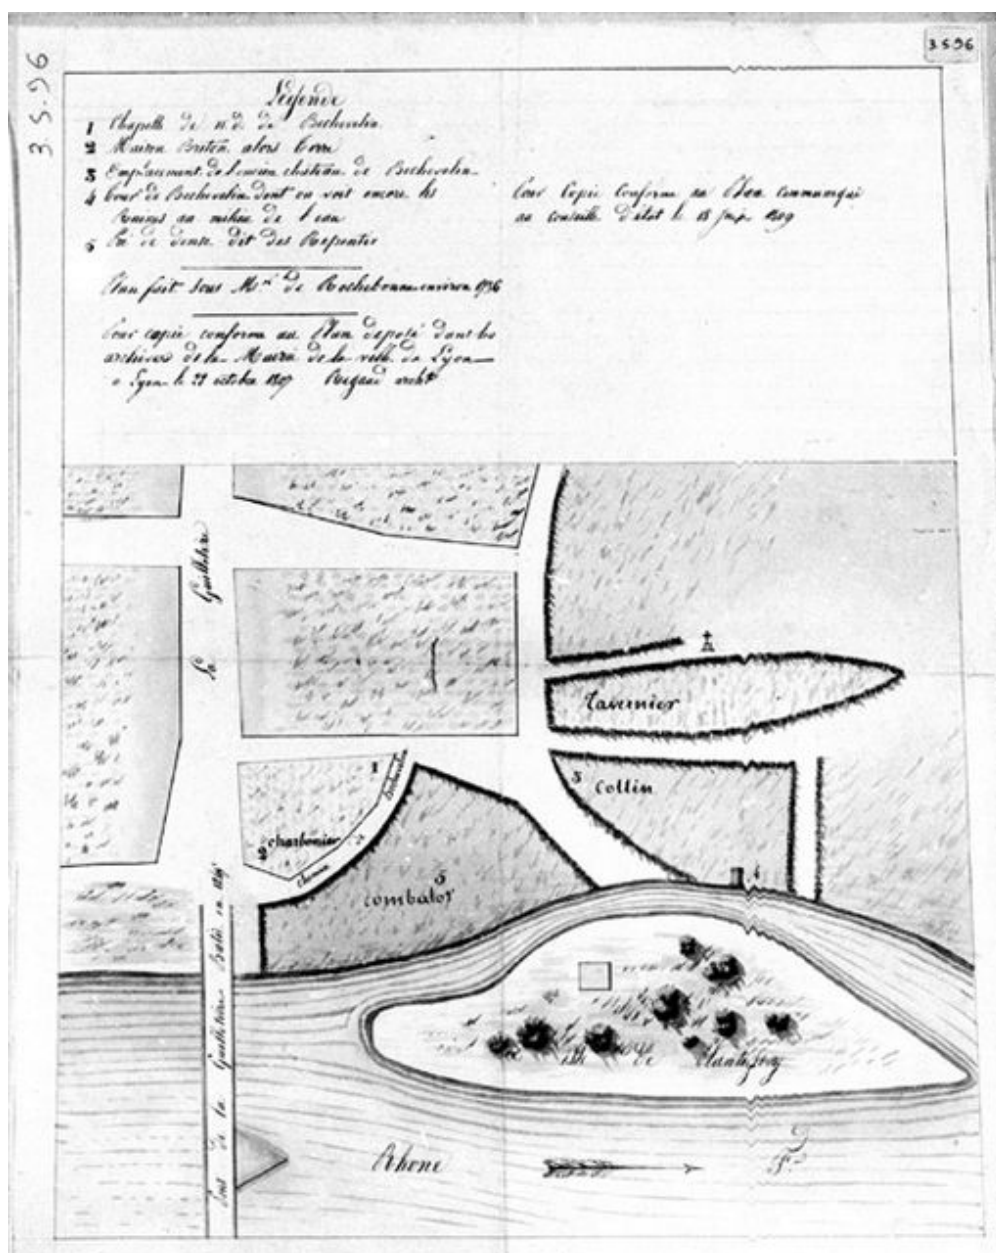 3 S 96
3.5.96
Légende
1 Chapelle de n. d. de Bechevelin
2 Maison Breton alors
3 Emplacement de l'ancien château de Bechevelin
4 Tour de Bechevelin dont on voit encore les
au milieu de l'eau
5 Pré de danse dit des Repenties
Plan fait sous Mgr de Rochebonne environ 1736
Pour copie conforme au Plan déposé dans les
archives de la Mairie de la ville de Lyon
a Lyon le octobre archte
Pour Copie Conforme au Plan communiqué
au conseille d'état le 18
La Guillotiere
Tavernier
3 Collin
1
2 charbonier
Chemin de Bechevelin
5
combalot
4
Pont de la Guillotiere Bati en
isle de
Rhone